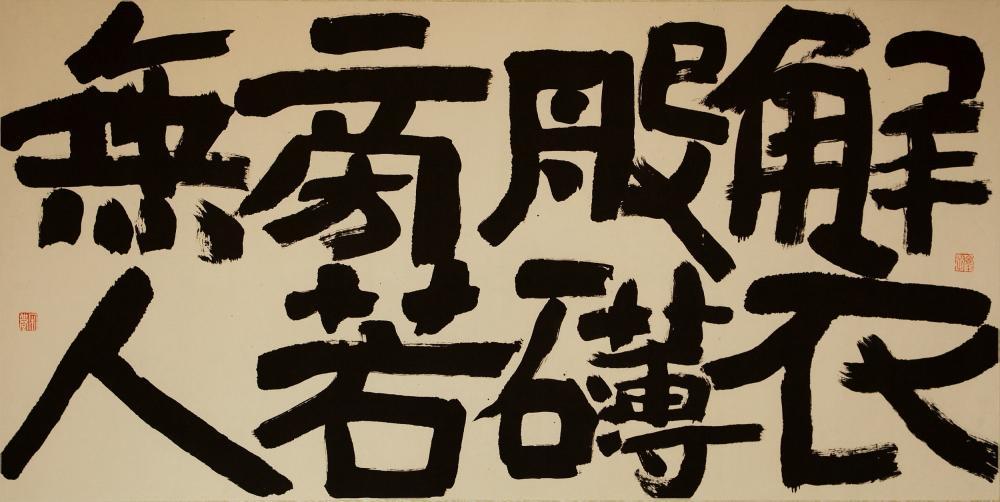 解衣
般礴
旁若
無人